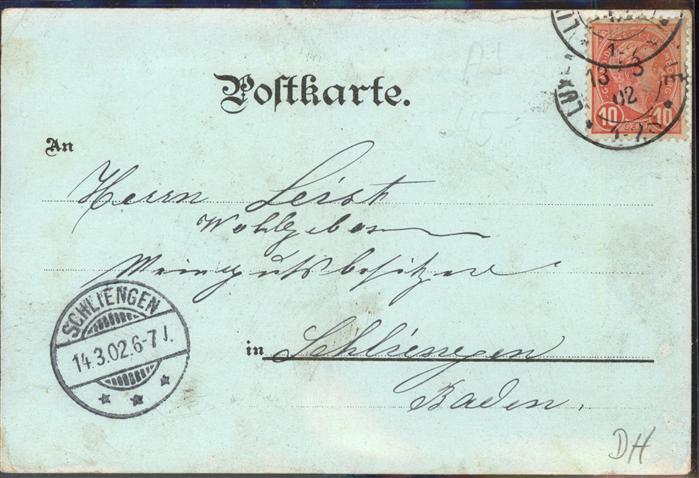 Postkarte.
An
Herrn Leist
Wohlgeboren
Weingutsbesitzer
in Schliengen
Baden.
SCHLIENGEN
14.3.02.6-7 J.
13 3
02
10 10
DH